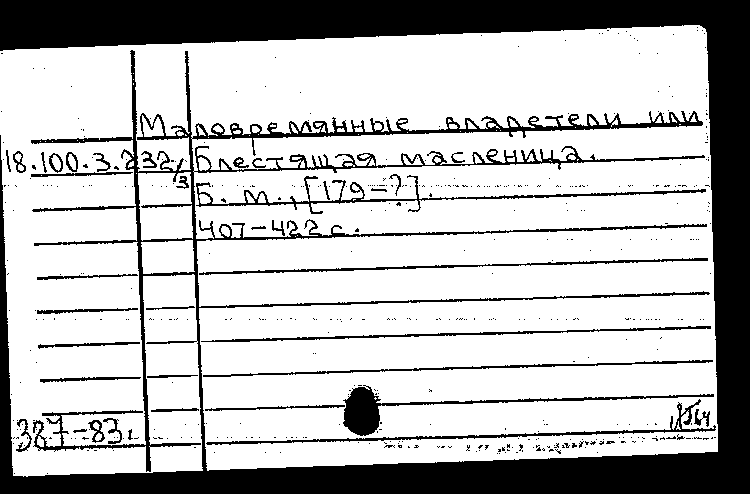 Маловремянные владетели или
18.100.3.232/3 Блестящая масленица.
Б. м., [179-?].
407-422 с.
387-83.